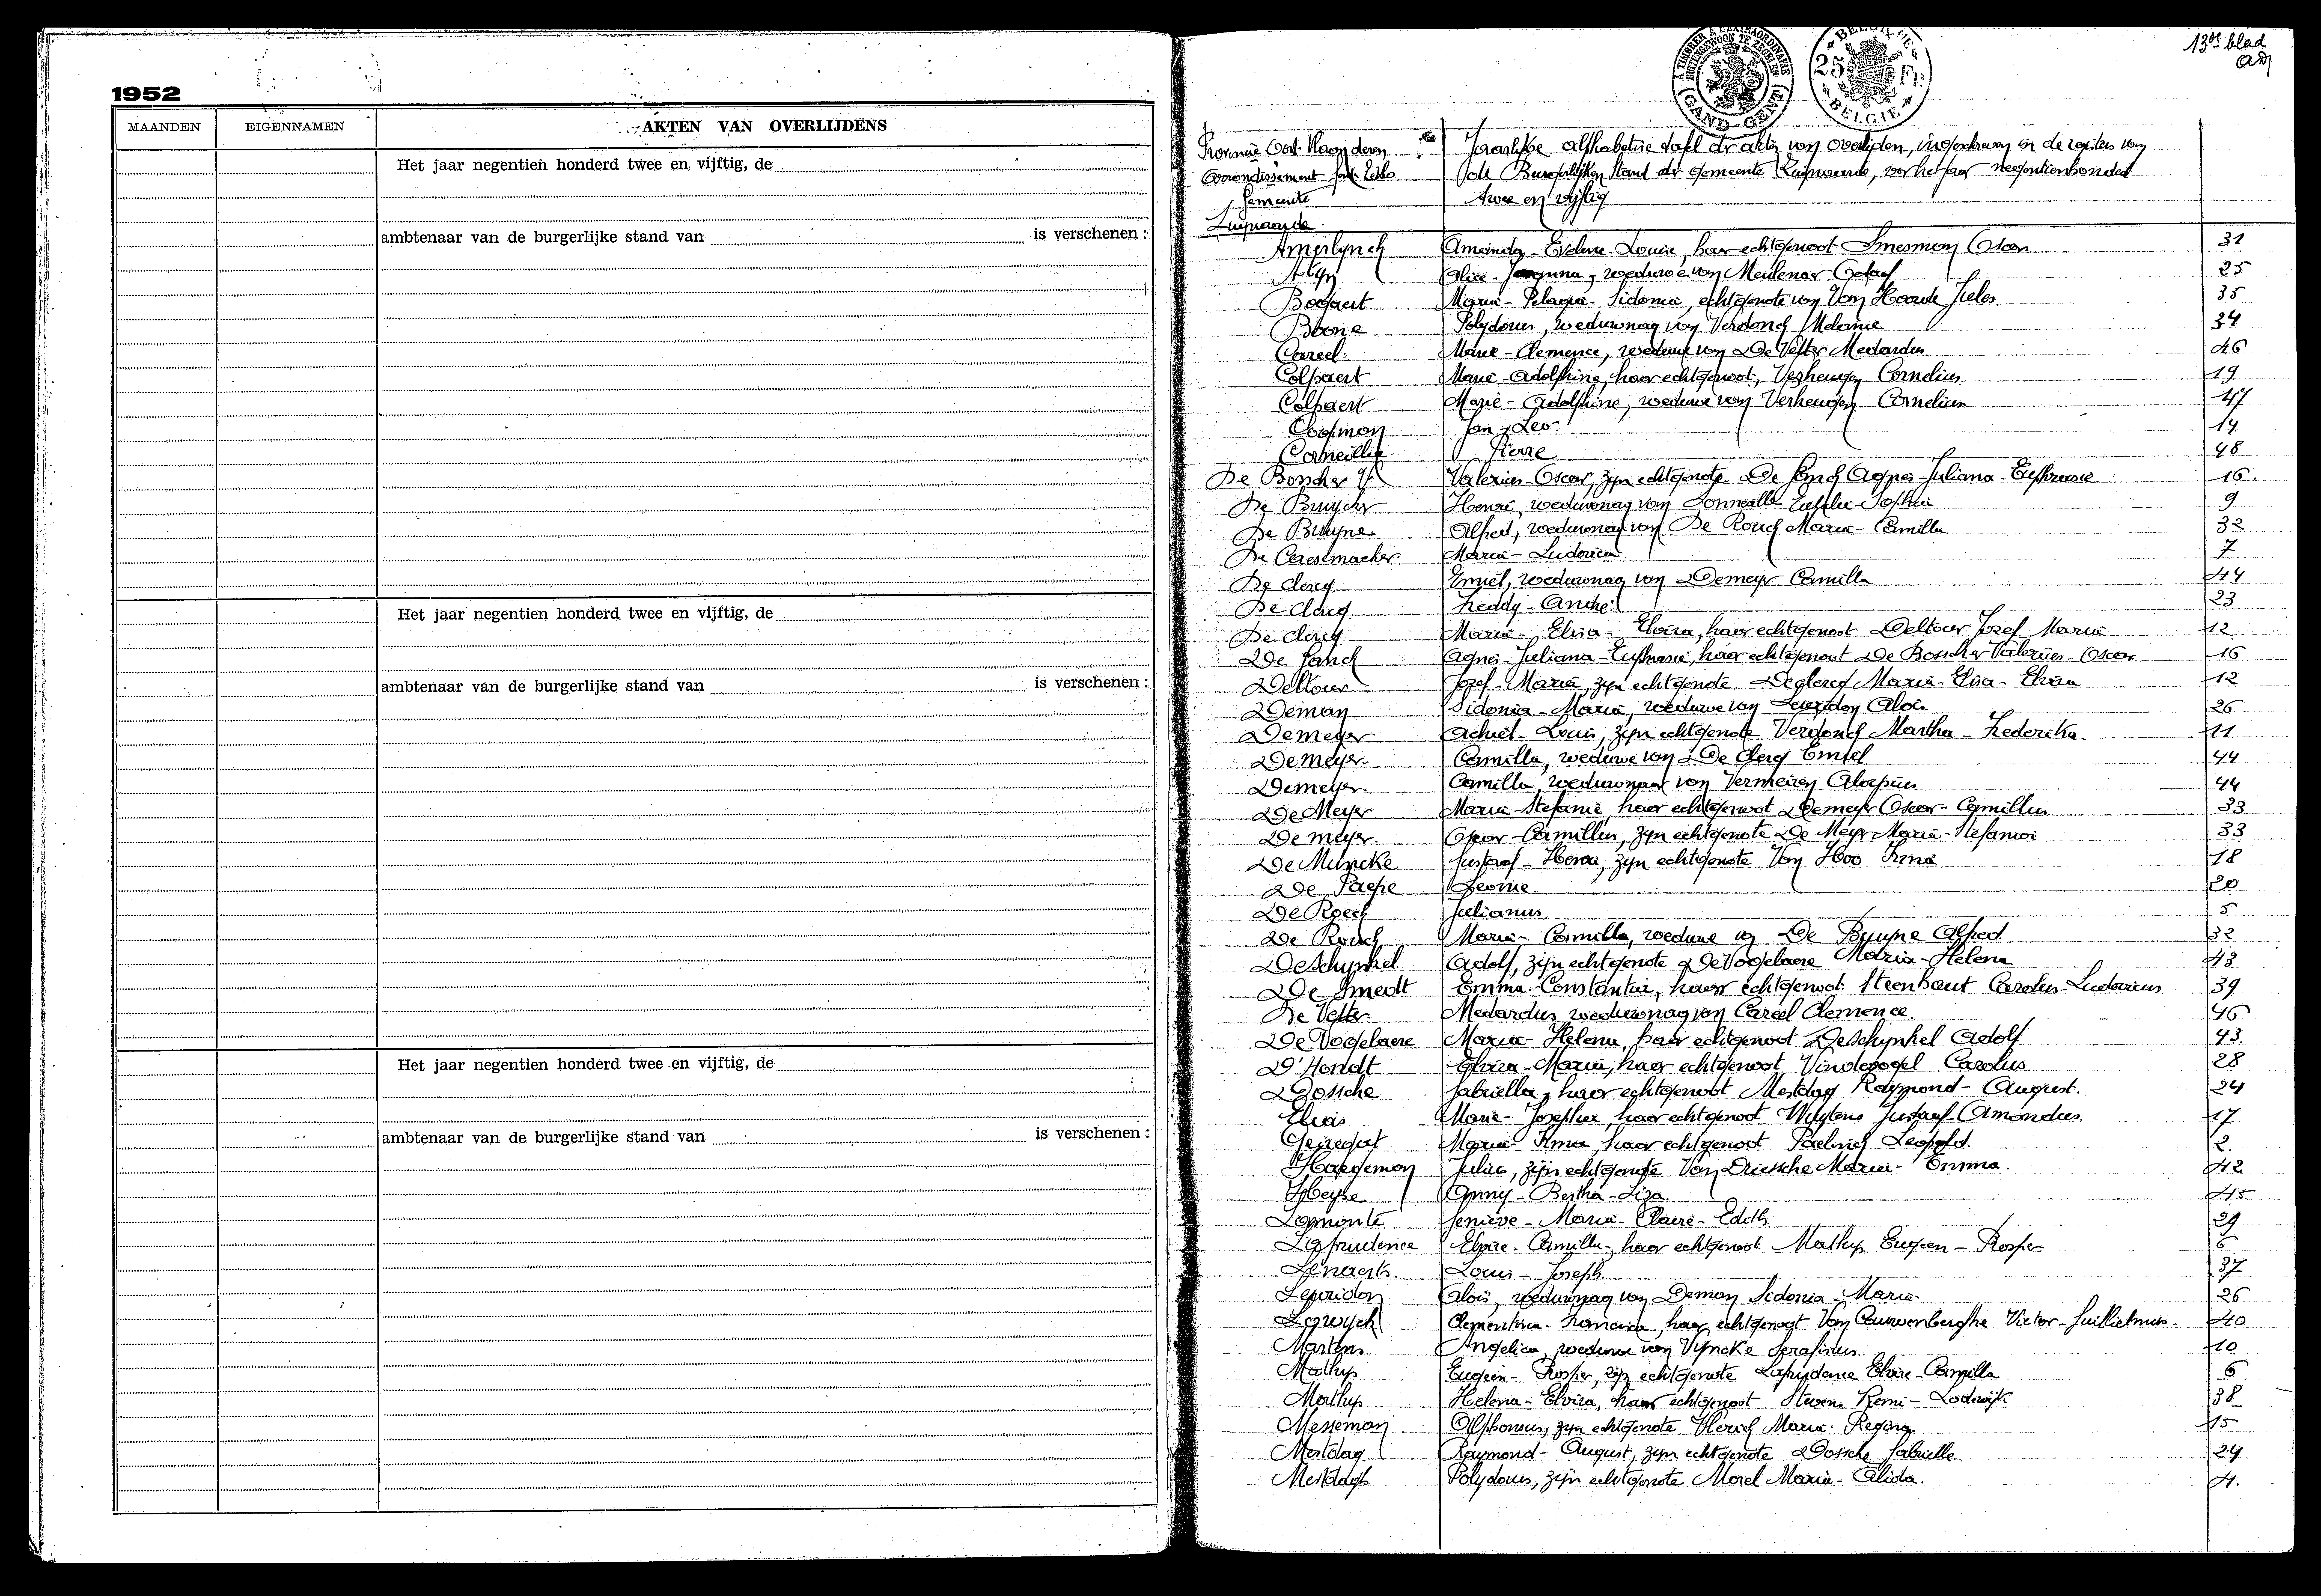 1952
MAANDEN EIGENNAMEN AKTEN VAN OVERLIJDENS
Het jaar negentien honderd twee en vijftig, de
ambtenaar van de burgerlijke stand van is verschenen :
Het jaar negentien honderd twee en vijftig, de
ambtenaar van de burgerlijke stand van is verschenen :
Het jaar negentien honderd twee en vijftig, de
ambtenaar van de burgerlijke stand van is verschenen :
13de blad
GAND - GENT
BELGIE
25
BELGIE
Provincie Oost-Vlaanderen Jaarlijkse alphabetische tafel der akten van overlijden, ingeschreven in de registers van
Arrondissement den Burgerlijken Stand der gemeente Zwijnaarde, voor het jaar negentienhonderd
Gemeente twee en vijftig
Zwijnaarde
Amerlynck Evelina-Louise, haar echtgenoot Oscar 31
Alice weduwe van Meulenaer Gustaaf 25
Bogaert Maria-Pelagia-Sidonia, echtgenote van Van Hoorde Jules 35
Boone Polydorus, weduwnaar van Verdonck Melanie 34
Careel Marie-Clemence, weduwe van De Vetter Medardus 46
Colpaert Marie-Adolphine, haar echtgenoot, Verheugen Cornelius 19
Colpaert Marie-Adolphine, weduwe van Verheugen Cornelius 47
Cooman Jan-Leo 14
Corneillie Pierre 48
De Boscher Valerius-Oscar, zijn echtgenote Agnes-Juliana 16
De Bruycker Henri, weduwnaar van Sophie 9
De Bruyne Alfred, weduwnaar van De Rouck Maria-Camilla 32
De Ceuselmaeker Maria-Ludovica 7
De Clercq Emiel, weduwnaar van Demeyer Camilla 44
De Clercq Freddy-André 23
De Clercq Maria-Elisa-Elvira, haar echtgenoot Deltour Jozef Maria 12
Agnes-Juliana haar echtgenoot De Boscher Valerius-Oscar 16
Deltour Jozef-Maria, zijn echtgenote Declercq Maria-Elisa-Elvira 12
Deman Sidonia-Maria, weduwe van Lepridon Aloïs 26
Demeyer Achiel-Louis, zijn echtgenote Verdonck Martha-Frederika 11
Demeyer Camilla, weduwe van De Clercq Emiel 44
Demeyer Camilla weduwnaar van Vermeiren Aloysius 44
De Meyer Maria-Stefanie, haar echtgenoot Demeyer Oscar-Camillus 33
Demeyer Oscar-Camillus, zijn echtgenote De Meyer Maria-Stefanie 33
De Muncke Gustaaf-Henri, zijn echtgenote Van Hoo Irma 18
De Paepe Leonie 20
De Roeck Julianus 5
De Rouck Maria-Camilla, weduwe van De Bruyne Alfred 32
Deschynkel Adolf, zijn echtgenote De Vogelaere Maria-Helena 43
De Smedt Emma-Constantia, haar echtgenoot Steenhaut Carolus-Ludovicus 39
De Vetter Medardus weduwnaar van Careel Clemence 46
De Vogelaere Maria-Helena, haar echtgenoot Deschynkel Adolf 43
D'Hondt Elvira-Maria, haar echtgenoot Vindevogel Carolus 28
Dossche Gabriella, haar echtgenoot Mestdag Raymond-August. 24
Elias Marie-Josephina, haar echtgenoot Gustaaf Amandus 17
Marie Irma haar echtgenoot Leopold 2
Haegeman Julien, zijn echtgenote Van Driessche Maria-Emma. 42
Heyse Anny-Bertha-Liza 45
Lamonte Geniève-Maria-Claire-Edith 29
Laprudence Elvire-Camilla, haar echtgenoot Mathys Eugeen-Prosper 6
Lenaerts Louis-Joseph 37
Lepridon Aloïs, weduwnaar van Deman Sidonia-Maria 26
Lewyck Clementina-Romania, haar echtgenoot Van Cauwenberghe Victor-Guillielmus 40
Martens Angelica, weduwe van Vyncke Serafinus 10
Mathys Eugeen-Prosper, zijn echtgenote Laprudence Elvire-Camilla 6
Mathys Helena-Elvira, haar echtgenoot Stevens Remi-Lodewijk 38
Messeman Alfonsus, zijn echtgenote Maria-Regina 15
Mestdag Raymond-August, zijn echtgenote Dossche Gabrielle 24
Mestdagh Polydorus, zijn echtgenote Morel Maria-Alida. 4.